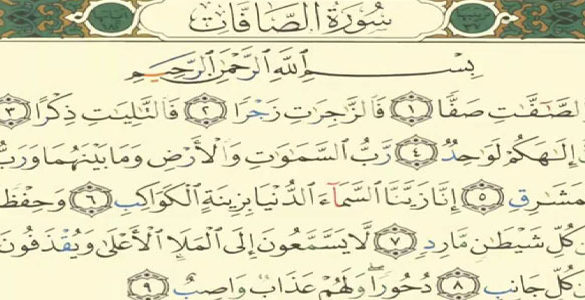 سُورَةُ الصَّافَّاتِ
بِسْمِ ٱللَّهِ ٱلرَّحْمَٰنِ ٱلرَّحِيمِ
لصَّٰٓفَّٰتِ صَفًّا ١ فَٱلزَّٰجِرَٰتِ زَجْرًا ٢ فَٱلتَّٰلِيَٰتِ ذِكْرًا ٣
إِلَٰهَكُمْ لَوَٰحِدٌ ٤ رَّبُّ ٱلسَّمَٰوَٰتِ وَٱلْأَرْضِ وَمَا بَيْنَهُمَا وَرَبُّ
مَشَٰرِقِ ٥ إِنَّا زَيَّنَّا ٱلسَّمَآءَ ٱلدُّنْيَا بِزِينَةٍ ٱلْكَوَاكِبِ ٦ وَحِفْظًا
كُلِّ شَيْطَٰنٍ مَّارِدٍ ٧ لَّا يَسَّمَّعُونَ إِلَى ٱلْمَلَإِ ٱلْأَعْلَىٰ وَيُقْذَفُونَ
كُلِّ جَانِبٍ ٨ دُحُورًا ۖ وَلَهُمْ عَذَابٌ وَاصِبٌ ٩